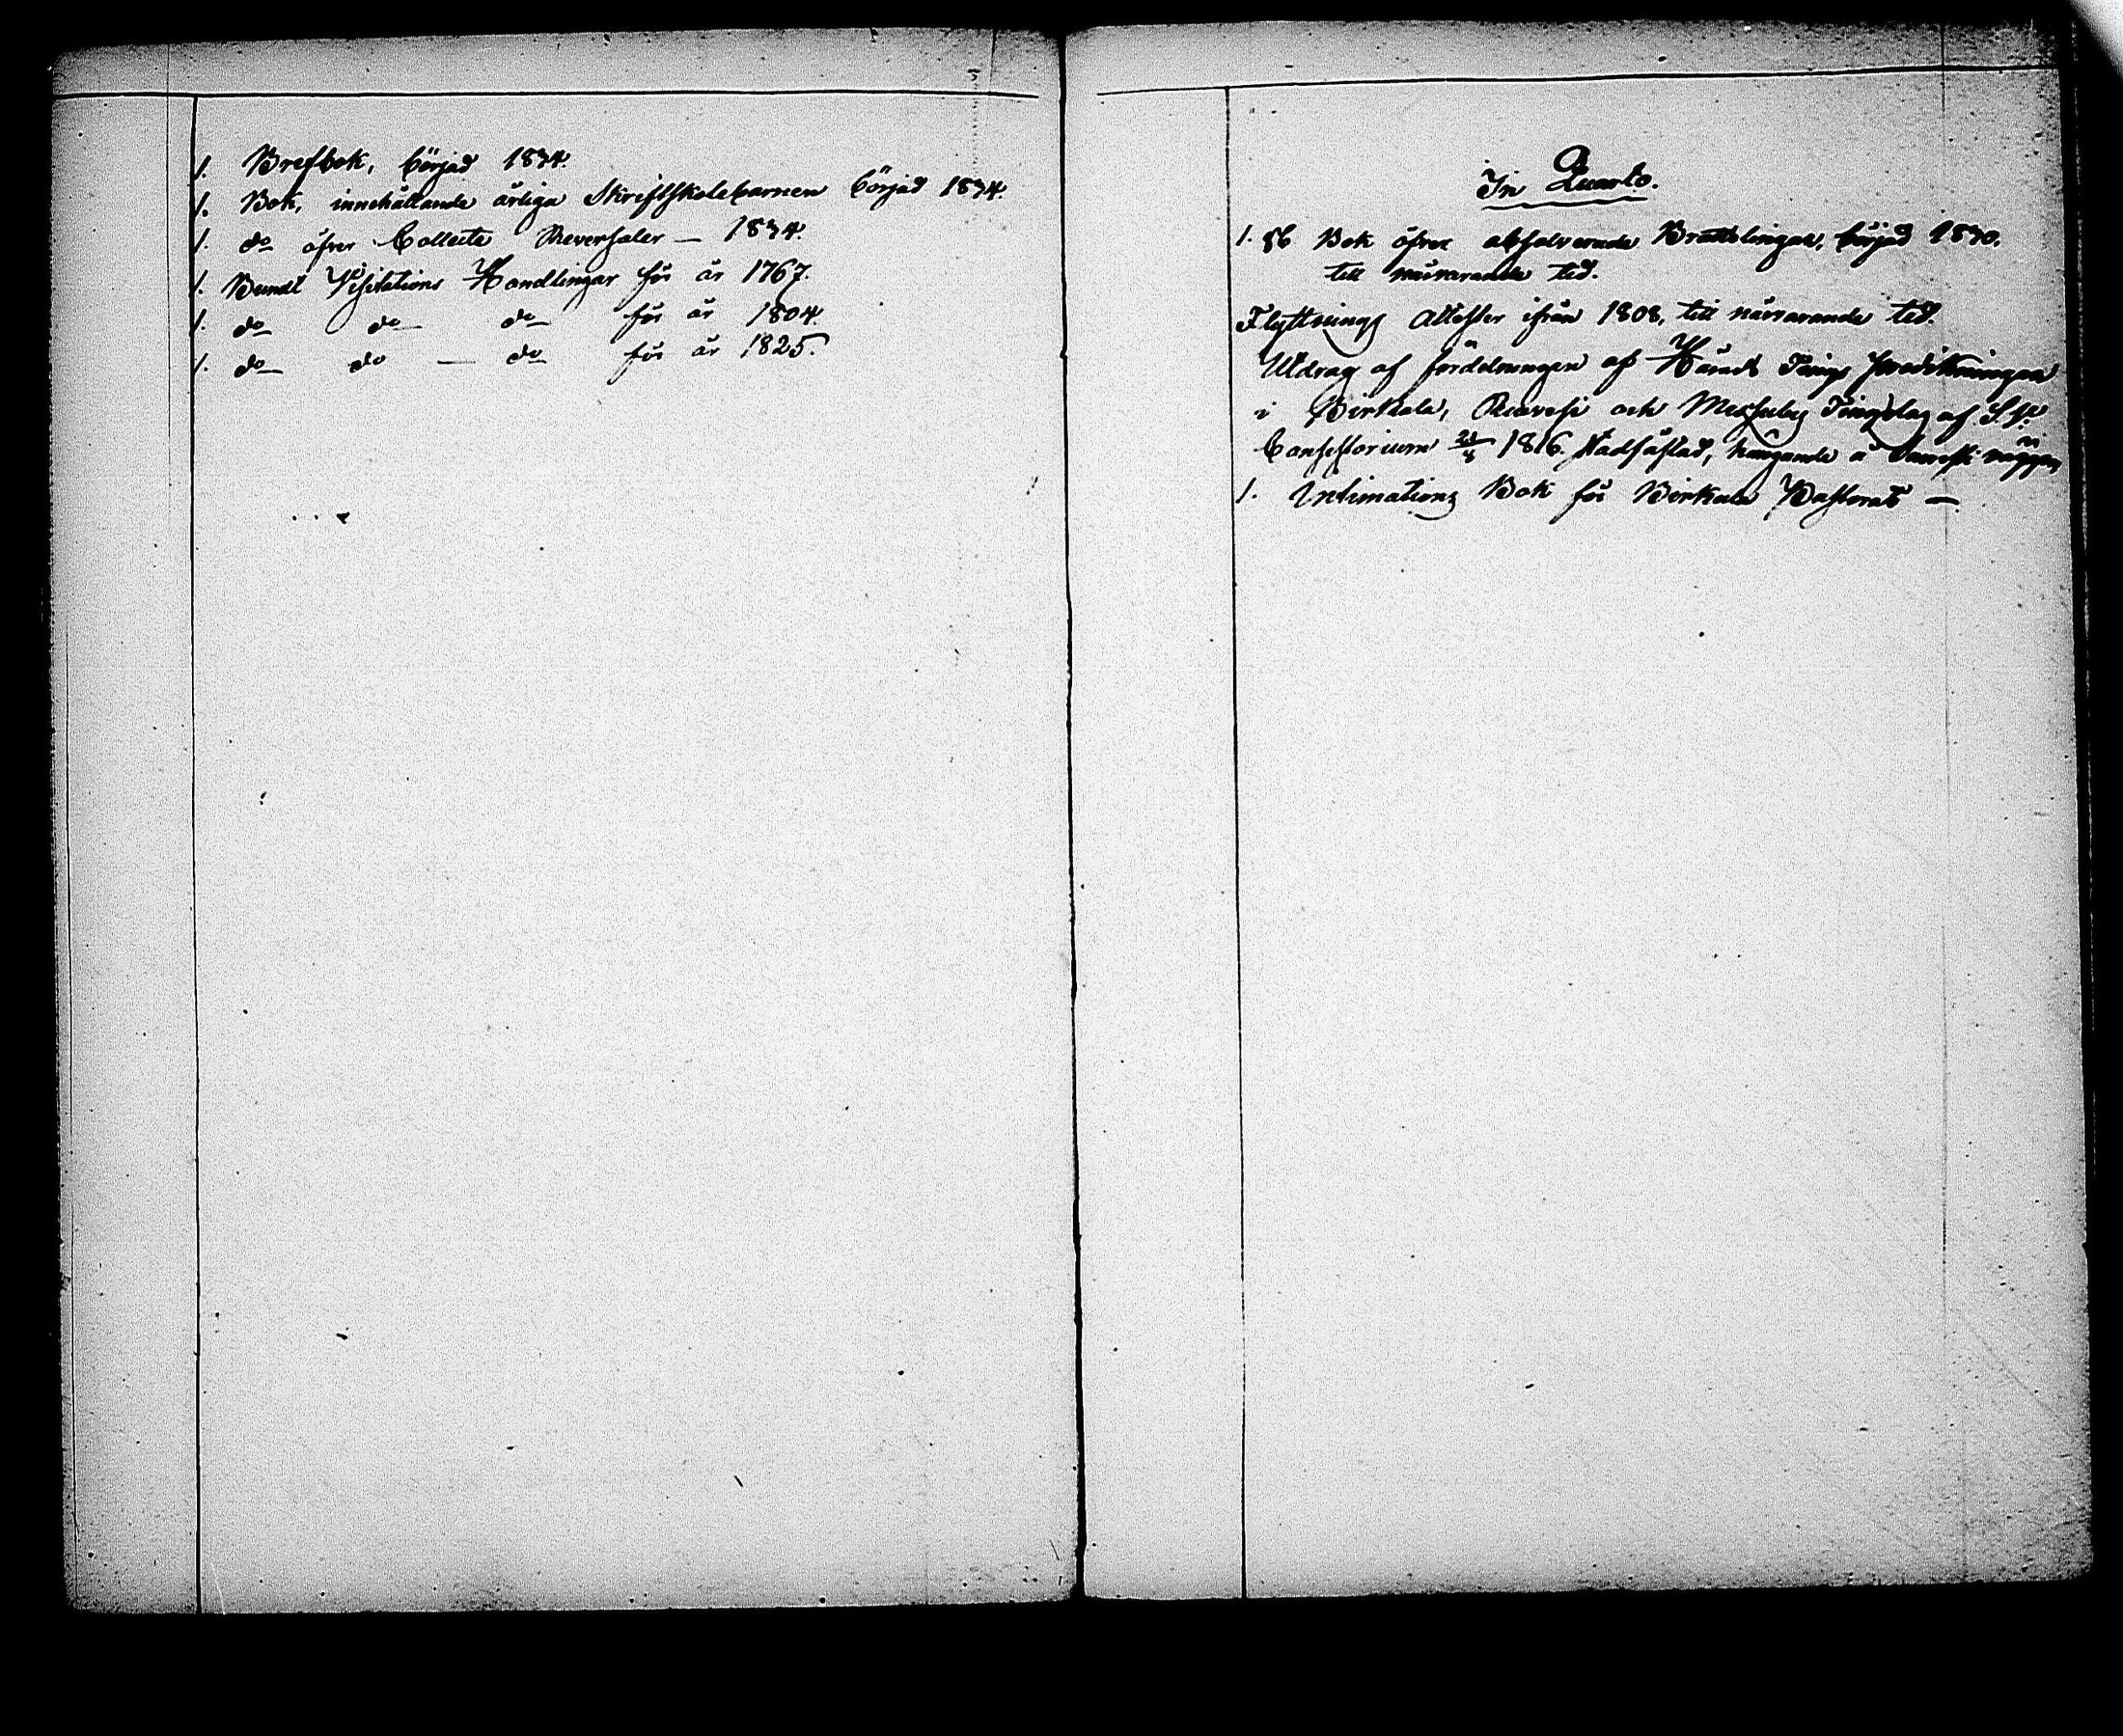 1. Brefbok, börjad 1834.
1. Bok, innehållande årliga Skriftskolebarnen börjad 1834.
1. do öfver Collecte Reversaler — 1834.
1. Bundt Visitations Handlingar för år 1767.
1. do do do för år 1804.
1. do do — do för år 1825.
In Quarto.
1. st Bok öfver absolverade Brottslingar, börjad 1830.
till närvarande tid.
Flyttnings Attester ifrån 1808, till närvarande tid.
Utdrag af fördelningen af Härads Tings predikningar
i Birkala, Ruovesi och Messuby Tingslag af
Consistorium 1816. stadfästad, hängande å väggen
1. Intimations Bok för Birkala Pastorat —